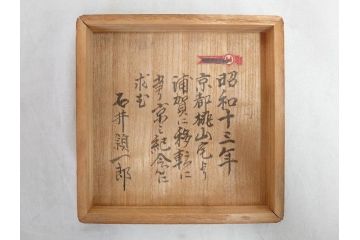 昭和十三年
京都桃山宅より
浦賀に移転に
当り家之紀念に
求む
石井頴一郎